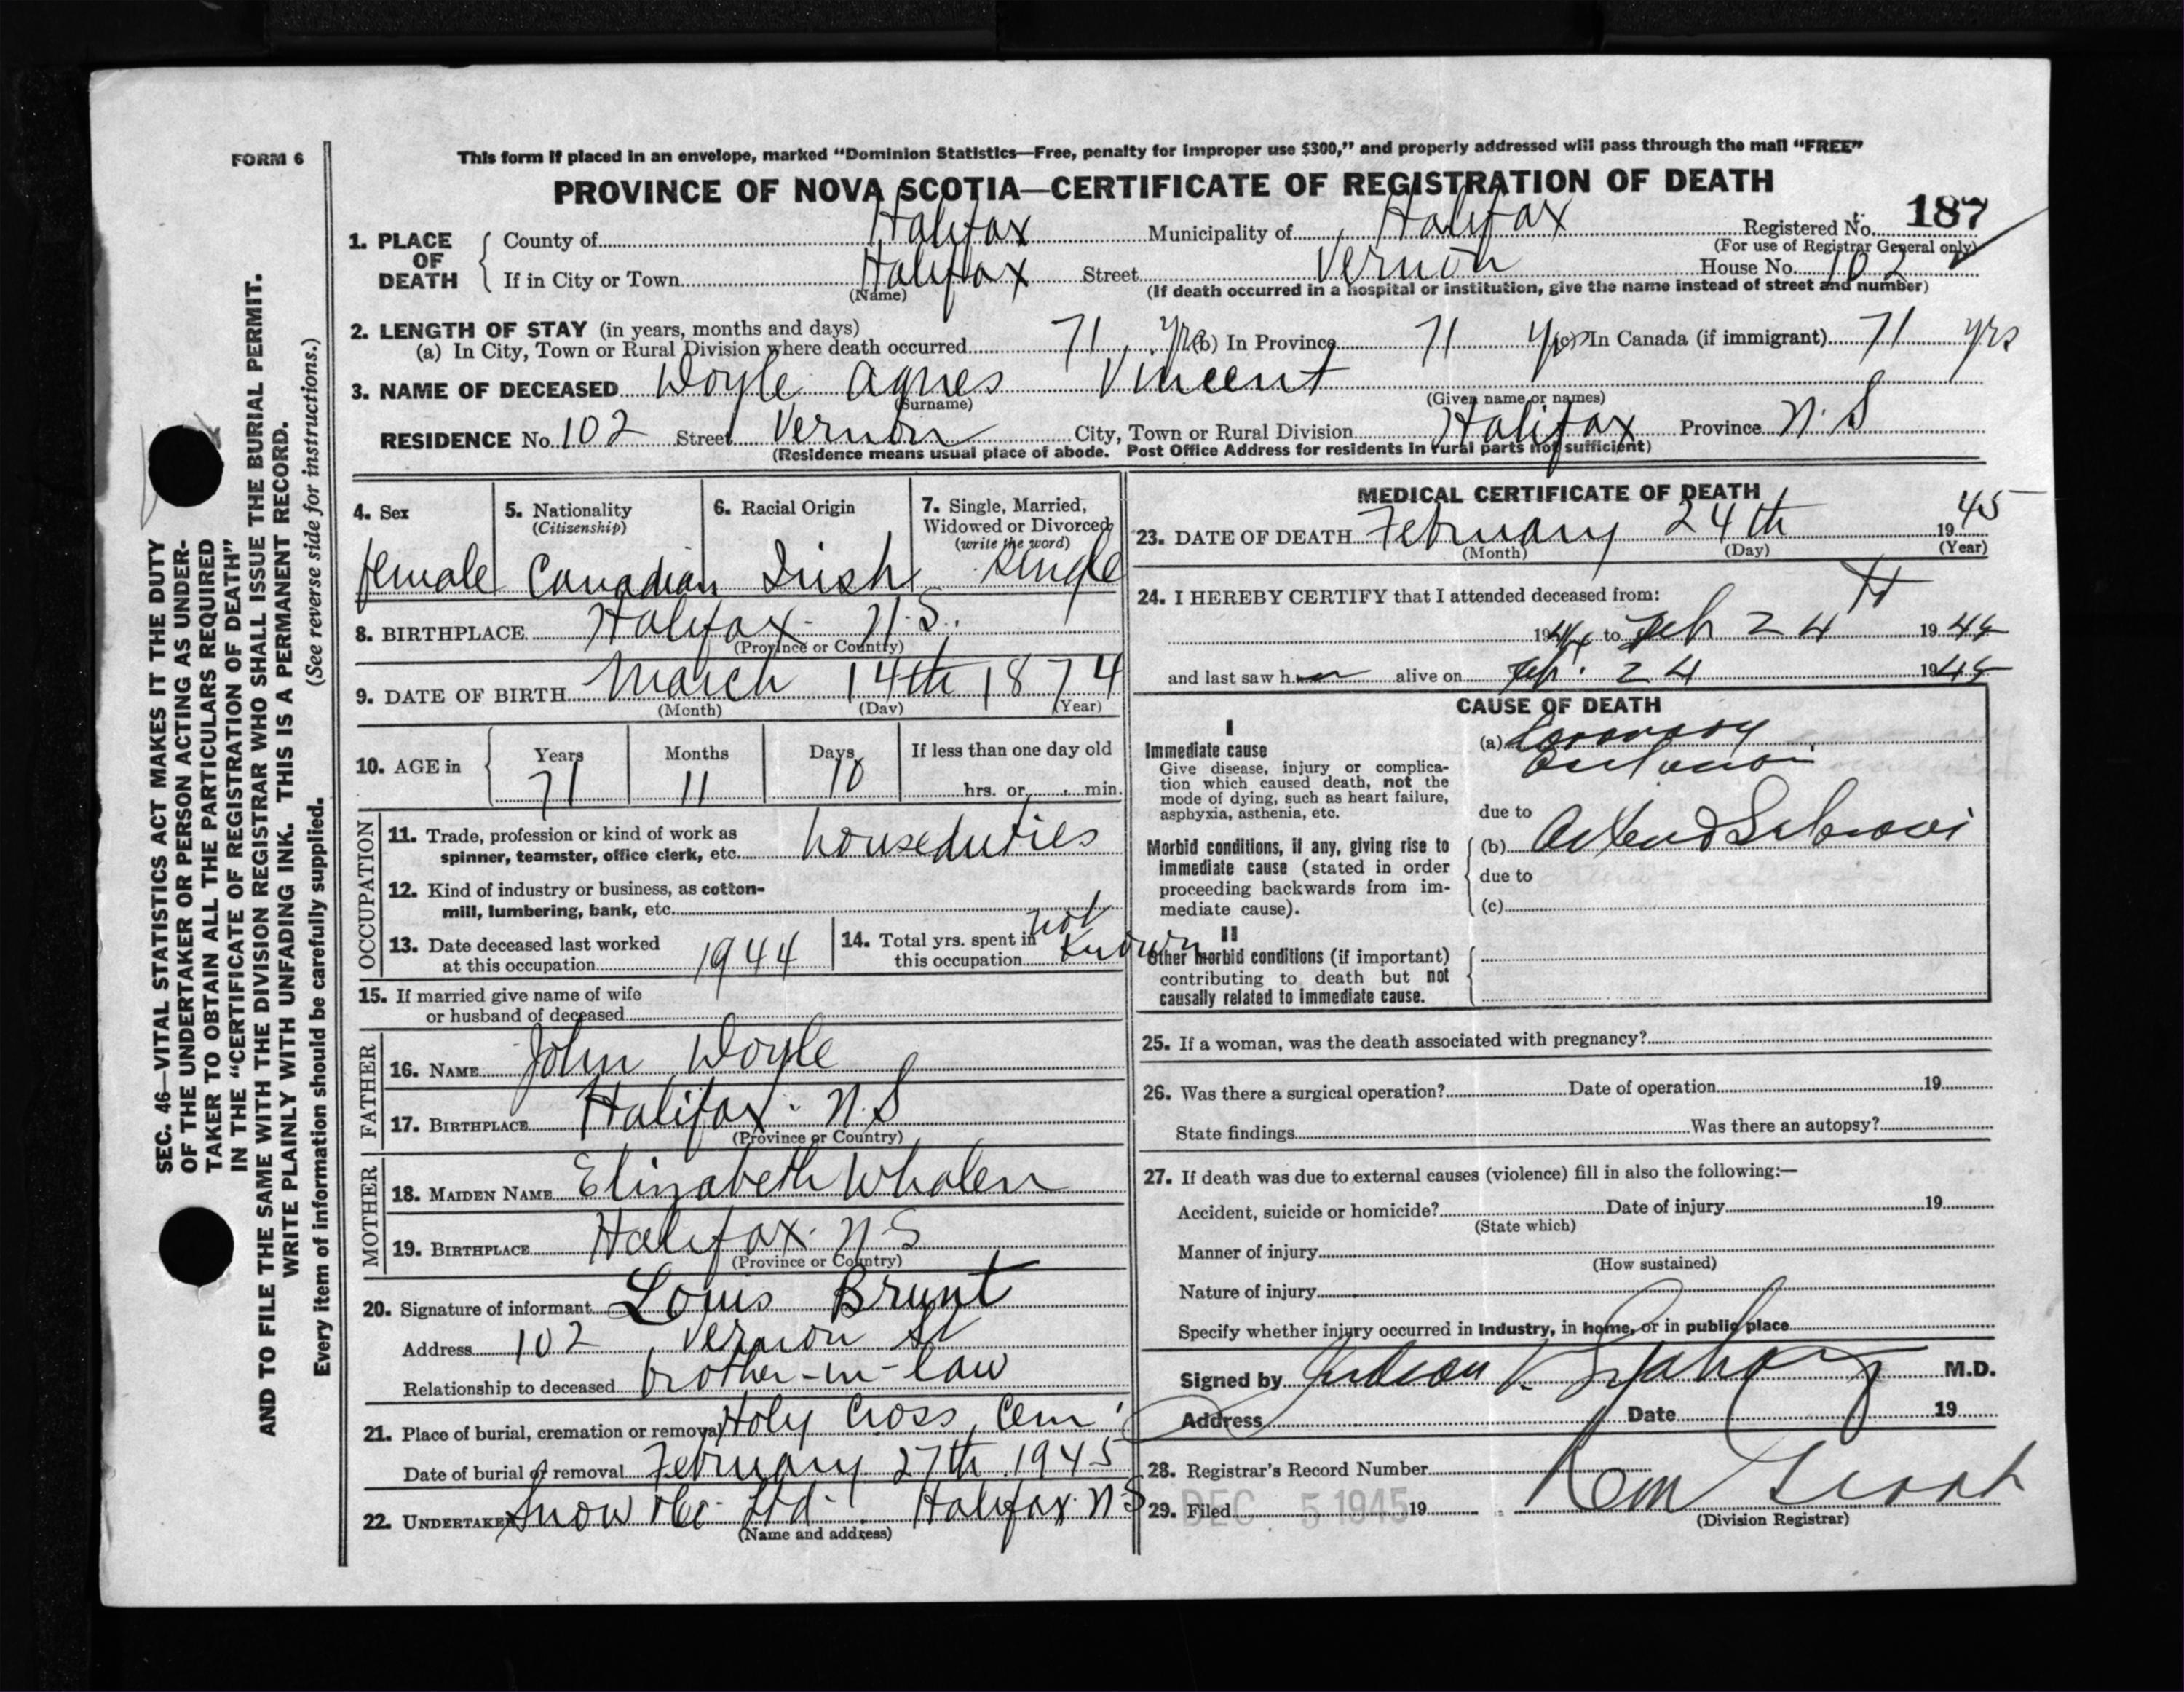 FORM 6
This form if placed in an envelope, marked "Dominion Statistics—Free, penalty for improper use $300," and properly addressed will pass through the mail "FREE"
PROVINCE OF NOVA SCOTIA—CERTIFICATE OF REGISTRATION OF DEATH
1. PLACE OF DEATH { County of Halifax Municipality of Halifax Registered No. 187
(For use of Registrar General only)
If in City or Town Halifax Street Vernon House No. 102
(Name) (If death occurred in a hospital or institution, give the name instead of street and number)
2. LENGTH OF STAY (in years, months and days)
(a) In City, Town or Rural Division where death occurred 71 yrs (b) In Province 71 yrs (c) In Canada (if immigrant) 71 yrs
3. NAME OF DECEASED Doyle Agnes Vincent
(Surname) (Given name or names)
RESIDENCE No. 102 Street Vernon City, Town or Rural Division Halifax Province N.S
(Residence means usual place of abode. Post Office Address for residents in rural parts not sufficient)
4. Sex
female
5. Nationality
(Citizenship)
Canadian
6. Racial Origin
Irish
7. Single, Married,
Widowed or Divorced
(write the word)
single
8. BIRTHPLACE Halifax N.S.
(Province or Country)
9. DATE OF BIRTH March 14th 1874
(Month) (Day) (Year)
10. AGE in { Years Months Days If less than one day old
71 11 10 hrs. or min.
OCCUPATION
11. Trade, profession or kind of work as
spinner, teamster, office clerk, etc. houseduties
12. Kind of industry or business, as cotton-
mill, lumbering, bank, etc.
13. Date deceased last worked
at this occupation 1944
14. Total yrs. spent in
this occupation not known
15. If married give name of wife
or husband of deceased
FATHER
16. NAME John Doyle
17. BIRTHPLACE Halifax. N.S
(Province or Country)
MOTHER
18. MAIDEN NAME Elizabeth Whalen
19. BIRTHPLACE Halifax. N.S
(Province or Country)
20. Signature of informant Louis Brunt
Address 102 Vernon St
Relationship to deceased brother-in-law
21. Place of burial, cremation or removal Holy Cross Cem
Date of burial or removal February 27th 1945
22. UNDERTAKER Snow & Co. Ltd. Halifax. N.S
(Name and address)
MEDICAL CERTIFICATE OF DEATH
23. DATE OF DEATH February 24th 1945
(Month) (Day) (Year)
24. I HEREBY CERTIFY that I attended deceased from:
19 to Feb 24 1945
and last saw h alive on Feb. 24 1945
CAUSE OF DEATH
I
Immediate cause
Give disease, injury or complica-
tion which caused death, not the
mode of dying, such as heart failure,
asphyxia, asthenia, etc.
(a) Coronary
due to
Morbid conditions, if any, giving rise to
immediate cause (stated in order
proceeding backwards from im-
mediate cause).
(b)
due to
(c)
II
Other morbid conditions (if important)
contributing to death but not
causally related to immediate cause.
25. If a woman, was the death associated with pregnancy?
26. Was there a surgical operation? Date of operation 19
State findings Was there an autopsy?
27. If death was due to external causes (violence) fill in also the following:—
Accident, suicide or homicide? Date of injury 19
(State which)
Manner of injury
(How sustained)
Nature of injury
Specify whether injury occurred in industry, in home, or in public place
Signed by M.D.
Address Date 19
28. Registrar's Record Number
29. Filed DEC 5 1945 19
(Division Registrar)
SEC. 46—VITAL STATISTICS ACT MAKES IT THE DUTY
OF THE UNDERTAKER OR PERSON ACTING AS UNDER-
TAKER TO OBTAIN ALL THE PARTICULARS REQUIRED
IN THE "CERTIFICATE OF REGISTRATION OF DEATH"
AND TO FILE THE SAME WITH THE DIVISION REGISTRAR WHO SHALL ISSUE THE BURIAL PERMIT.
WRITE PLAINLY WITH UNFADING INK. THIS IS A PERMANENT RECORD.
Every item of information should be carefully supplied. (See reverse side for instructions.)